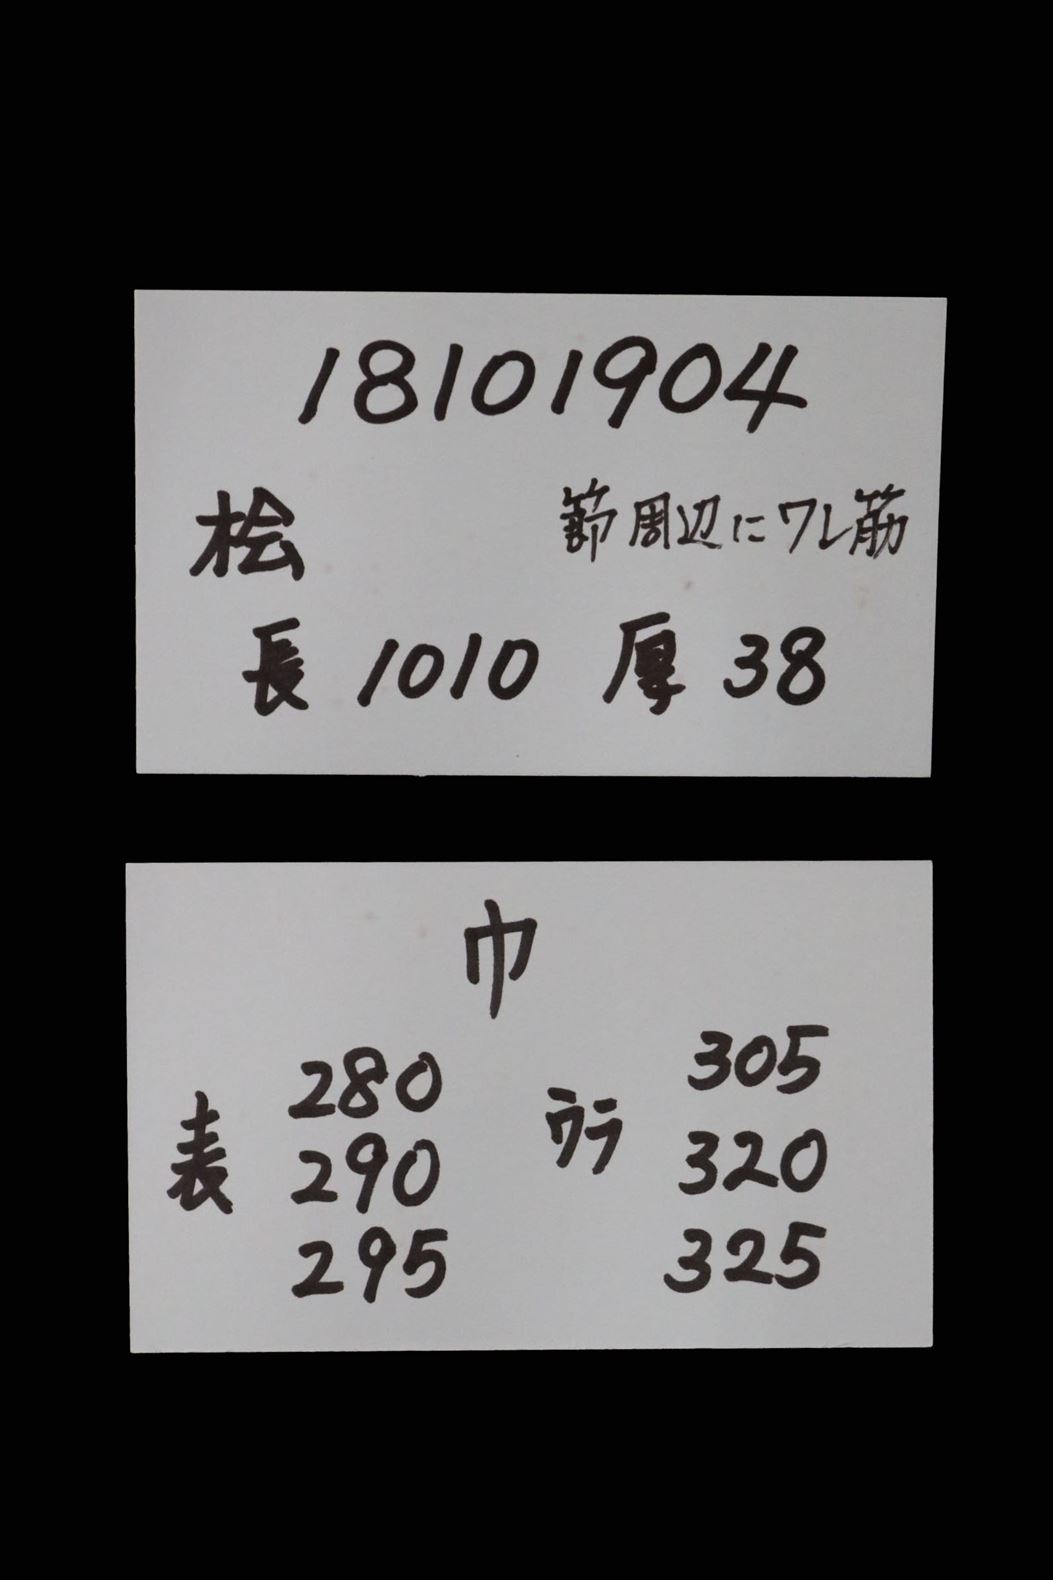 18101904
桧 節周辺にワレ筋
長 1010 厚 38
巾
表 280 290 295
ウラ 305 320 325